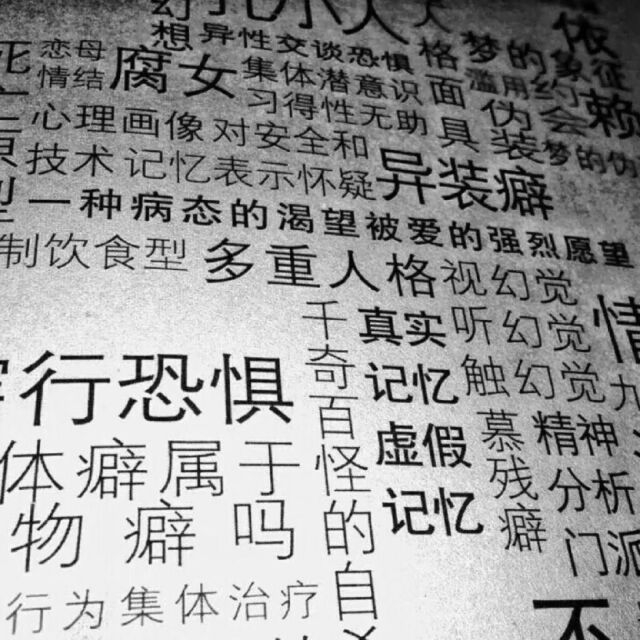 幻孔小人
想异性交谈恐惧 格梦的象征
恋母情结 腐女 集体潜意识 面 滥用约
习得性无助 具 伪会赖
心理画像 对安全和 装梦的伪
技术 记忆表示怀疑 异装癖
型一种病态的渴望被爱的强烈愿望
制饮食型 多重人格 视幻觉
千奇百怪的自 真实记忆 听幻觉
行恐惧 触幻觉
虚假记忆 慕残癖 精神分析门派
体癖属于
物癖吗
行为集体治疗